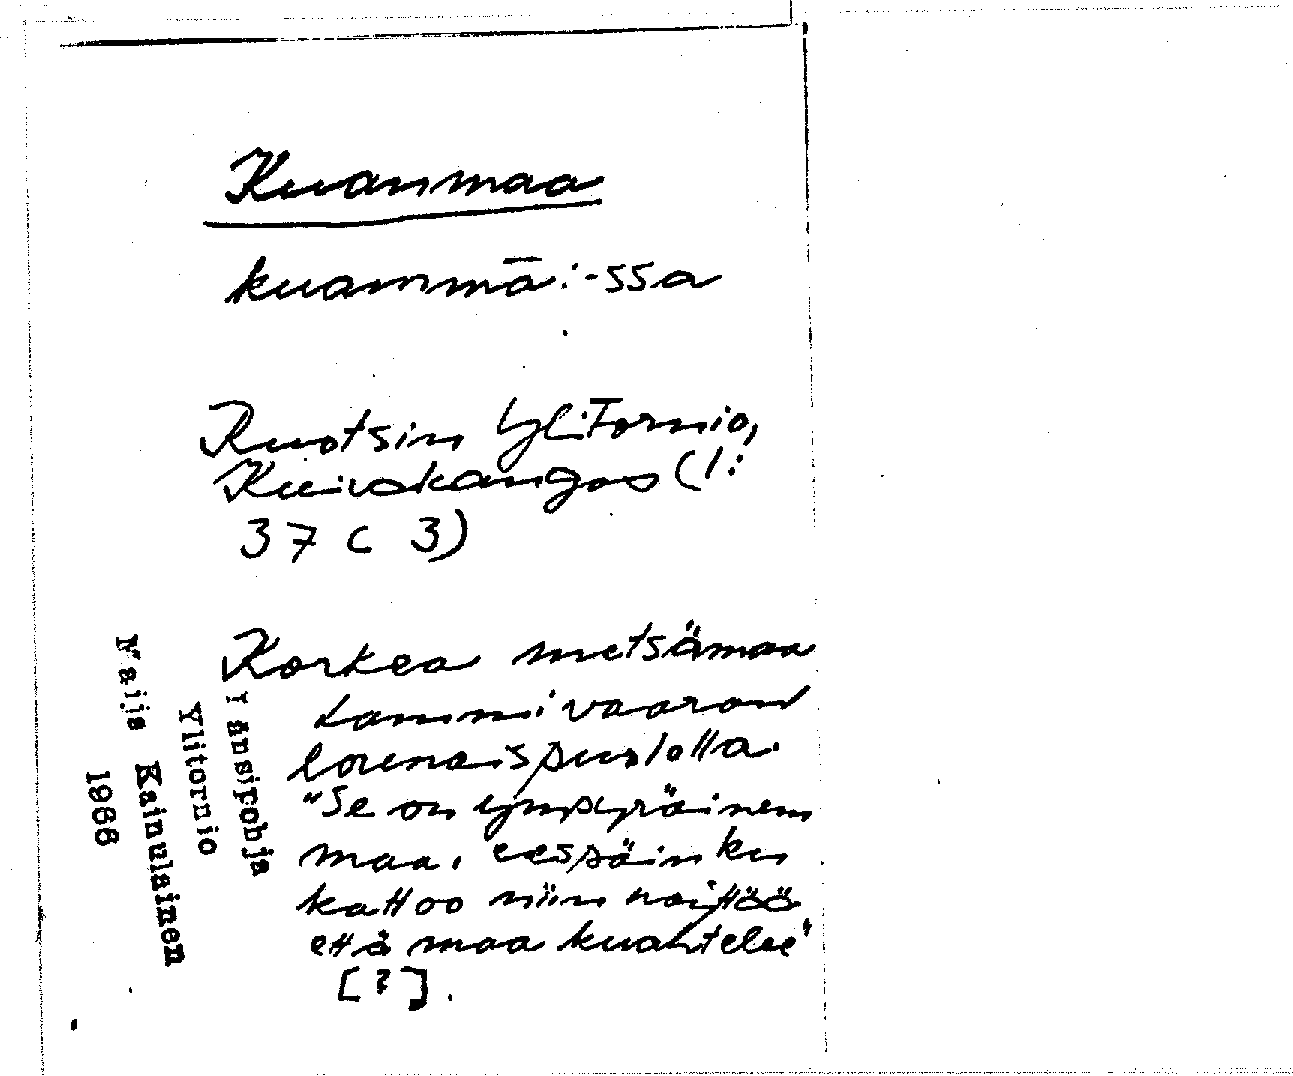 Kuanmaa
kuammā: -ssa
Ruotsin Ylitornio,
Kuivakangas (1:
37 C 3)
Korkea metsämaa
Lammivaaran
lounaispuolella.
"Se on ympyräinen
maa, eespäin ku
kattoo niin näyttöö
että maa kuahtelee"
[?].
Länsipohja
Ylitornio
Maija Kainulainen
1966